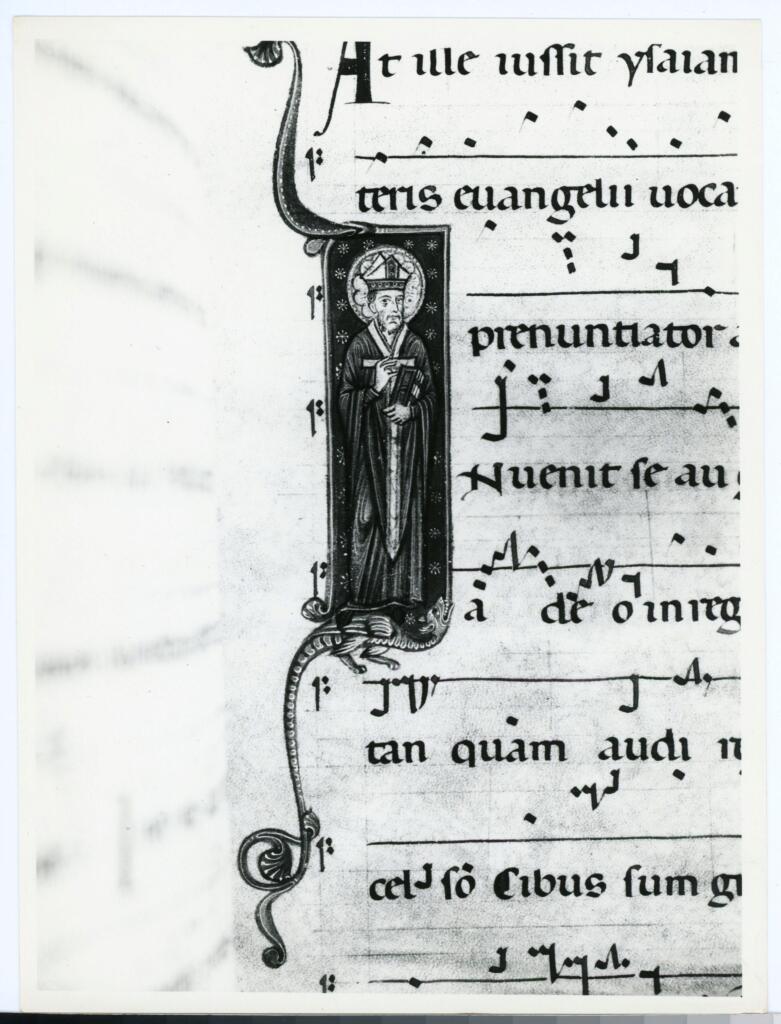 At ille iussit ysaiam
teris euangelii uoca
prenuntiator a
Nuenit se au
a dē o in reg
tan quam audi
cel so Cibus sum